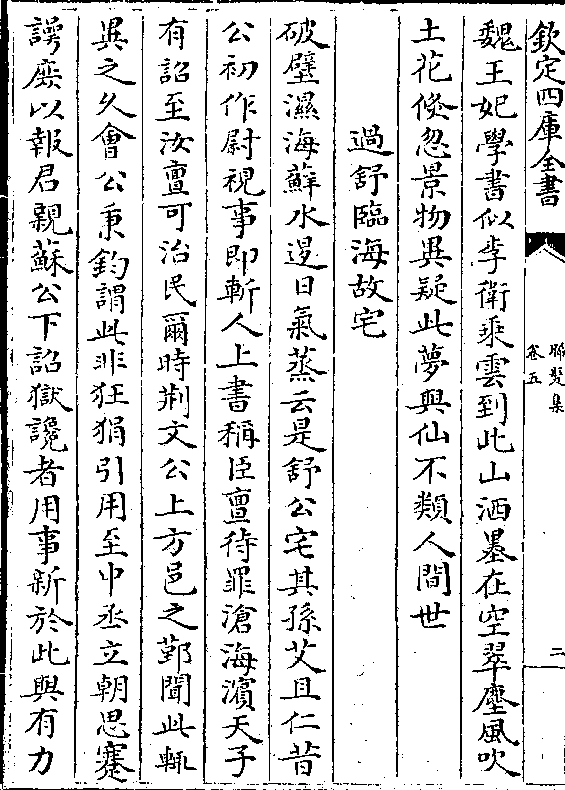 欽定四庫全書
晞髮集
卷五
二
魏王妃學書似李衛乘雲到此山洒墨在空翠塵風吹
土花倐忽景物異疑此夢與仙不類人間世
過舒臨海故宅
破壁濕海蘚水邊日氣蒸云是舒公宅其孫艾且仁昔
公初作尉視事即斬人上書稱臣亶待罪滄海濵天子
有詔至汝亶可治民爾時荆文公上方邑之鄞聞此輒
異之乆會公秉鈞謂此非狂狷引用至中丞立朝思蹇
諤庶以報君親蘇公下詔獄讒者用事新於此與有力